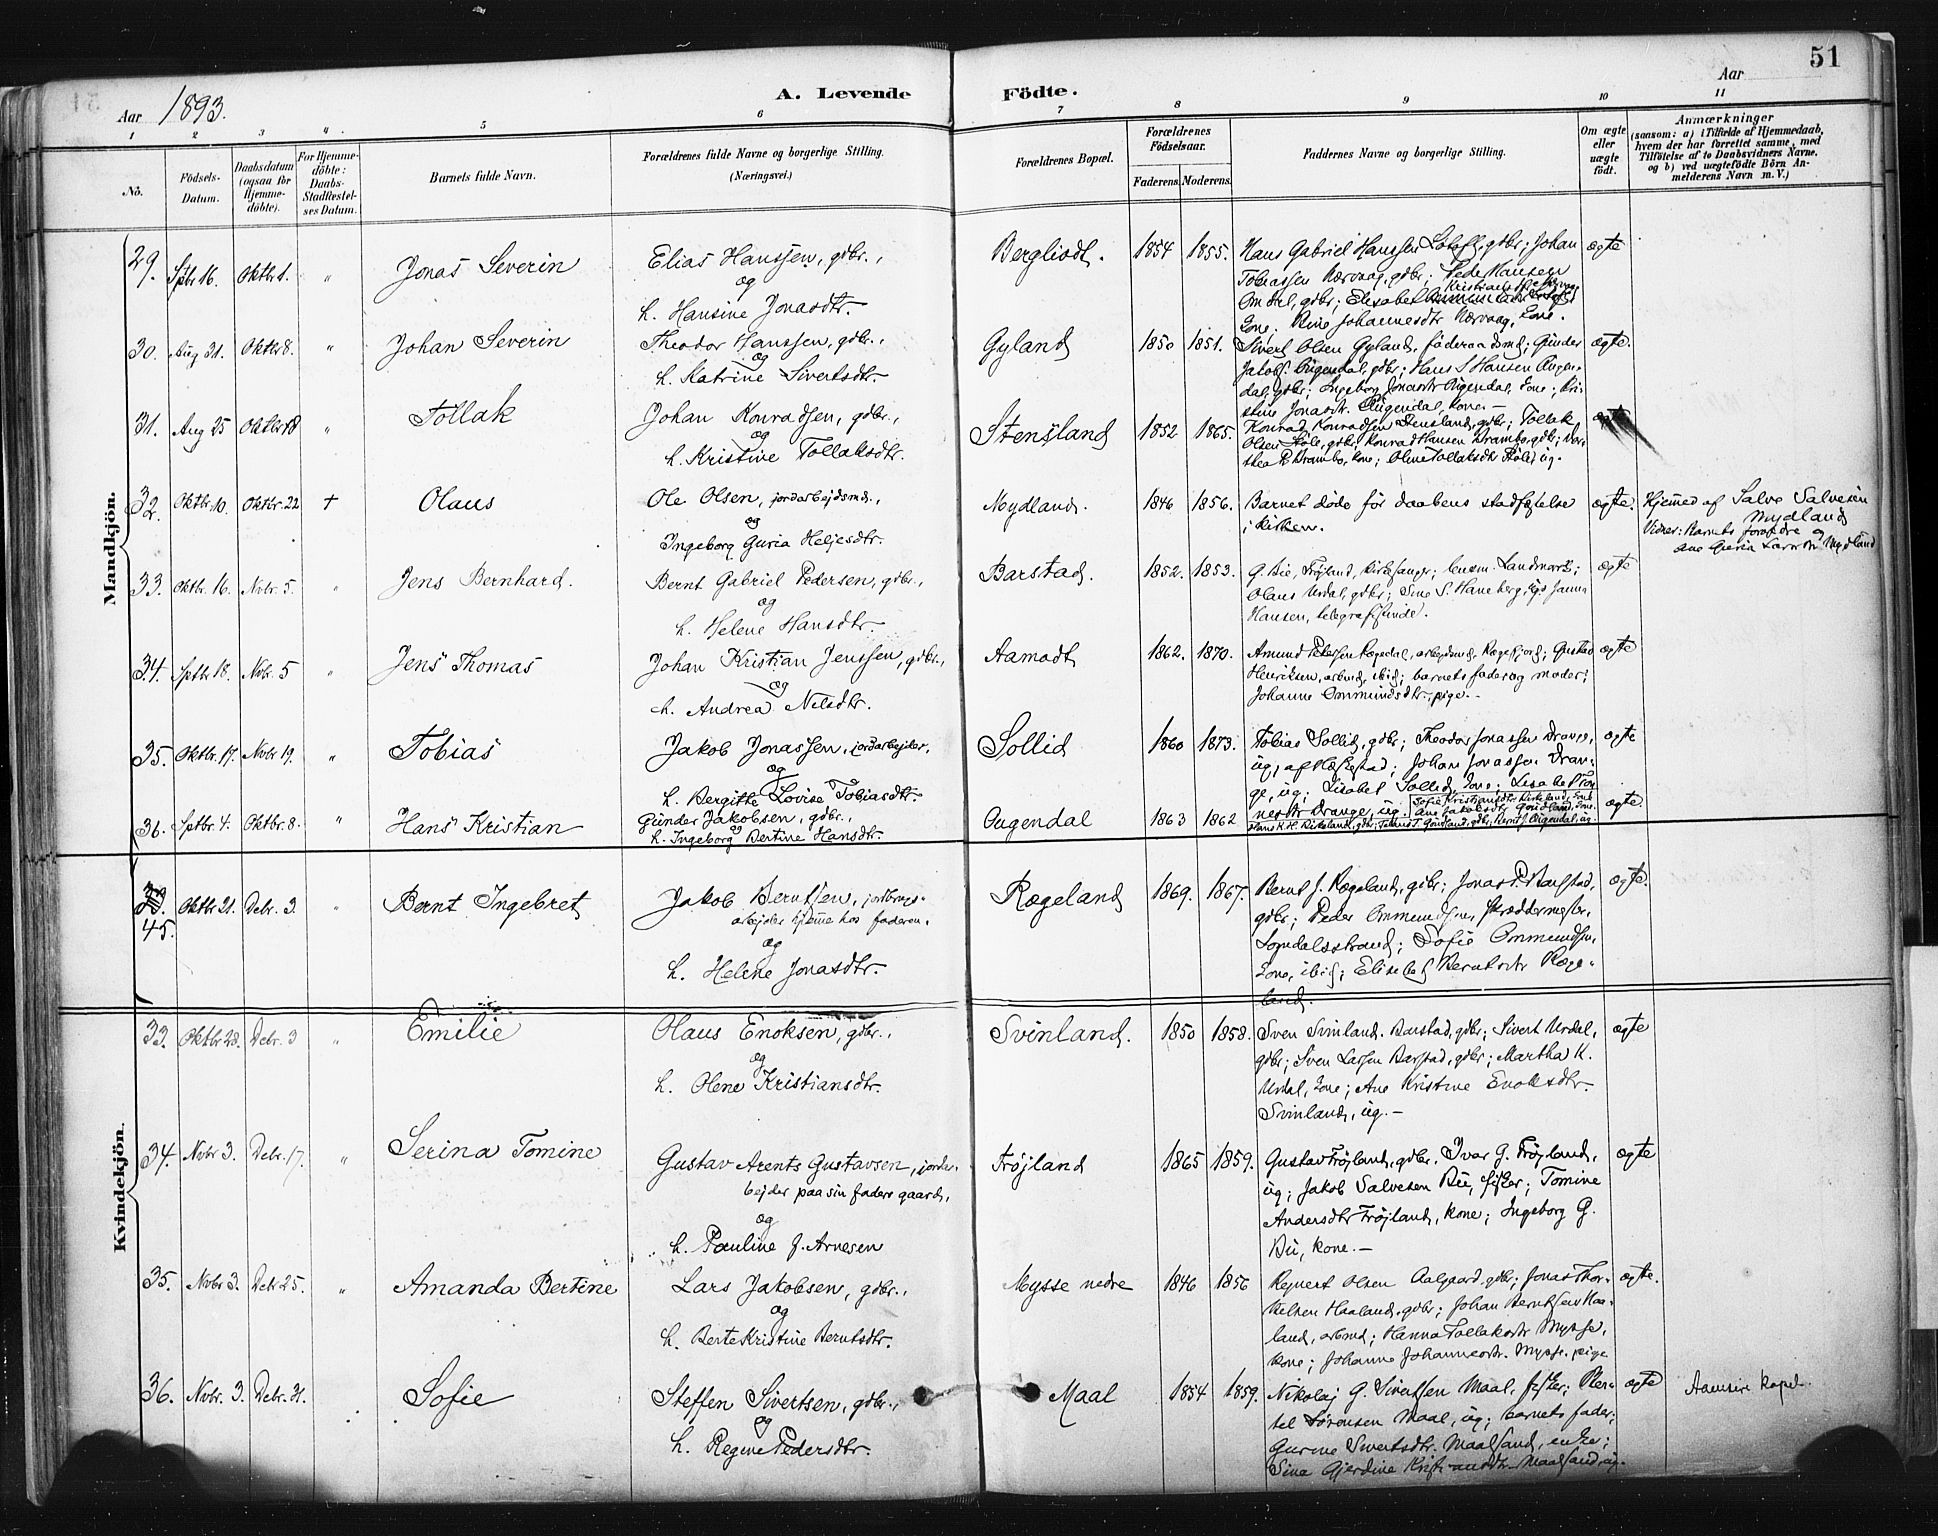 51
Aar 1893.
A. Levende Födte.
Aar
1 2 3 4 5 6 7 8 9 10 11
No.
Födsels-Datum.
Daabsdatum (ogsaa for Hjemmedöbte).
For Hjemmedöbte: Daabs-Stadfestelses Datum.
Barnets fulde Navn.
Forældrenes fulde Navne og borgerlige Stilling.
(Næringsvei.)
Forældrenes Bopæl.
Forældrenes Födselsaar.
Faderens. Moderens.
Faddernes Navne og borgerlige Stilling.
Om ægte eller uægte født.
Anmærkninger
(saasom: a) i Tilfælde af Hjemmedaab,
hvem der har forrettet samme, med
Tilföielse af to Daabsvidners Navne,
og b) ved uægtefödte Börn An-
melderens Navn m. V.)
Mandkjön.
29. Sptbr 16. Oktbr 1. " Jonas Severin
Elias Hanssen, gdbr.,
og
h. Hansine Jonasdtr.
Bergliodt. 1854 1855.
Hans Gabriel Hanssen, gdbr; Johan
Tobiassen Nærvaag, gdbr; Peder Hansen
Omdal, gdbr; Elisabet
kone. Rine Johannesdtr Nærvaag, kone.
ægte
30. Aug 31. Oktbr 8. " Johan Severin
Theodor Hanssen, gdbr.,
og
h. Katrine Sivertsdtr.
Gyland 1850 1851.
Sivert Olsen Gyland, föderaadsmd; Günder
Jakobs. Øigendal, gdbr; Hans S Hansen Øigen-
dal, gdbr; Ingeborg Jonasdtr Øigendal, kone; Kri-
stine Jonasdtr. Øigendal, kone. —
ægte.
31. Aug 25 Oktbr " Tollak
Johan Konradsen, gdbr.,
og
h. Kristine Tollaksdtr.
Stensland 1852 1865.
Konrad Konradsen Stensland, gdbr; Tollak
Olsen Støle, gdbr; Konrad Hansen Drambo, gdbr; Dor-
thea P. Drambo, kone; Oline Tollaksdtr Støle, üg.
ægte
32. Oktbr. 10. Oktbr. 22 † Olaus
Ole Olsen, jordarbejdsmd.,
og
Ingeborg Guria Heljesdtr.
Mydland. 1846 1856.
Barnet døde før daabens stadfæstelse
i kirken.
ægte.
Hjemed af Salve Salvesen
Mydland
Vidner: Barnets forældre og
Ane Guria Larsdtr Mydland
33. Oktbr. 16. Novbr. 5. " Jens Bernhard.
Bernt Gabriel Pedersen, gdbr.,
og
h. Helene Hansdtr.
Barstad. 1852. 1853.
G. Bie, Frøjland, kirkesanger; Landmark;
Olaus Urdal, gdbr; Sine S. Haneberg, üg; Janna
Hansen, telegrafistinde.
ægte
34. Sptbr 18. Novbr. 5 " Jens Thomas
Johan Kristian Jenssen, gdbr.,
og
h. Andrea Nilsdtr.
Aamodt 1862. 1870.
Amund Pedersen Rægedal, arbejdsmd, Rægefjord; Gustav
Henriksen, arbmd, ibid; barnets fader og moder;
Johanne Ommundsdtr, pige. -
ægte
35. Oktbr. 17. Novbr 19. " Tobias
Jakob Jonassen, jordarbejder,
og
h. Bergitte Lovise Tobiasdtr.
Sollid 1860 1873.
Tobias Sollid, gdbr; Theodor Jonassen Drange,
üg, af Hæskestad; Johan Jonassen Dran-
ge, üg; Lisabet Sollid, kone; Lisabet Tor-
nesdtr Drange, üg.
ægte
36. Sptbr. 4. Oktbr. 8. " Hans Kristian
Günder Jakobsen, gdbr.,
og
h. Ingeborg Bertine Hansdtr.
Ougendal 1863 1862
Sofie Kristiansdtr Birkeland, kone
Ane Jakobsdtr Goudland, kone.
Hans K. H. Birkeland, gdbr; Tønnes T. Goudland, gdbr; Bernt J. Øigendal, üg
ægte.
45. Oktbr 21. Debr. 3. " Bernt Ingebret
Jakob Berntsen, jordbrugs-
arbejder hjemme hos faderen.
og
h. Helene Jonasdtr.
Rægeland 1869. 1867.
Bernt J. Rægeland, gdbr; Jonas P. Barstad,
gdbr; Peder Ommundsen, skræddermester,
Sogndalsstrand; Sofie Ommundsen,
kone, ibid; Elisabet Berntsdtr Ræge-
land.
ægte.
Kvindekjön.
33. Oktbr 28. Debr. 3 " Emilie
Olaus Enoksen, gdbr.,
og
h. Olene Kristiansdtr.
Svinland. 1850 1858.
Sven Svinland. Barstad, gdbr; Sivert Urdal,
gdbr; Sven Larsen Barstad, gdbr; Martha K.
Urdal, kone; Ane Kristine Enoksdtr.
Svinland, üg. —
ægte
34. Novbr 3. Debr. 17. " Serina Tomine
Gustav Arents Gustavsen, jordar-
bejder paa sin faders gaard,
og
h. Pauline J. Arnesen
Frøjland 1865 1859.
Gustav Frøjland, gdbr. Ivar G. Frøjland,
üg; Jakob Salvesen Bü, fisker; Tomine
Andersdtr Frøjland, kone; Ingeborg G.
Bü, kone. —
ægte
35. Novbr 3. Debr 25. " Amanda Bertine
Lars Jakobsen, gdbr.,
og
h. Berte Kristine Berntsdtr.
Mysse nedre 1846 1856
Reynert Olsen Aalgaard, gdbr; Jonas Thor-
kelsen Haaland, gdbr; Johan Berntsen Haa-
land, arbmd; Hanna Tollaksdtr Mysse,
kone; Johanne Johannesdtr. Mysse, pige
ægte.
36. Novbr. 3. Debr. 31. Sofie
Steffen Sivertsen, gdbr.,
og
h. Regine Pedersdtr.
Maal 1854 1859.
Nikolaj G. Sivertsen Maal, fisker; Ber-
tel Sørensen Maal, üg; barnets fader;
Gurine Sivertsdtr. Maalsand, enke;
Sina Gjerdine Kristiansdtr Maalsand, üg.
ægte
Aamsire kapel